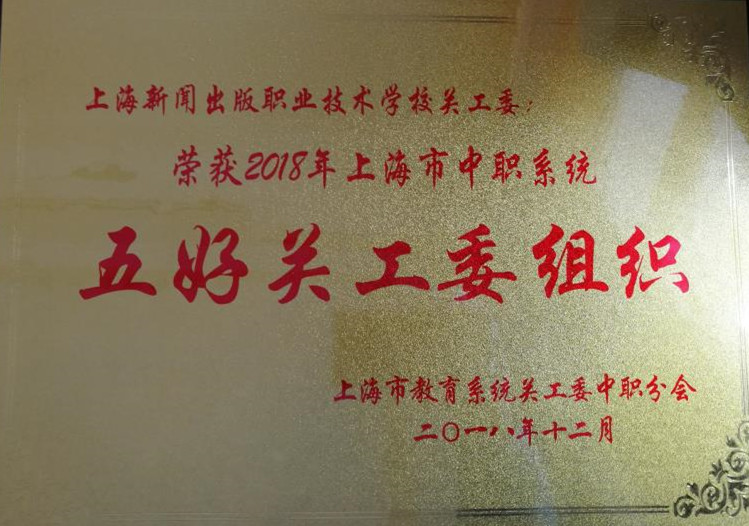 上海新闻出版职业技术学校关工委：
荣获2018年上海市中职系统
五好关工委组织
上海市教育系统关工委中职分会
二〇一八年十二月